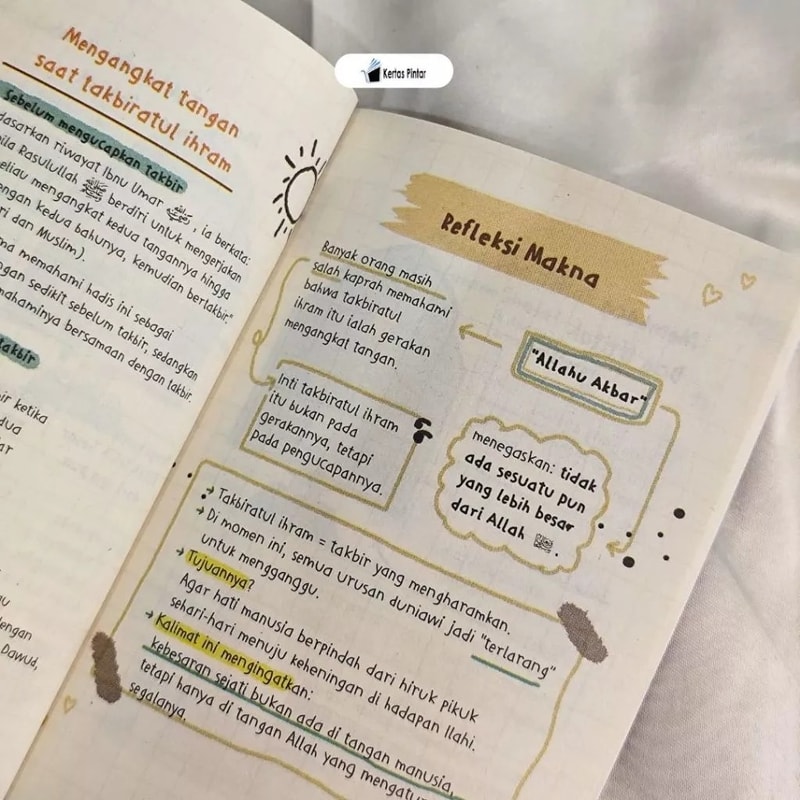 Kertas Pintar
Mengangkat tangan
saat takbiratul ihram
Sebelum mengucapkan takbir
dasarkan riwayat Ibnu Umar, ia berkata:
bila Rasulullah ﷺ berdiri untuk mengerjakan
beliau mengangkat kedua tangannya hingga
dengan kedua bahunya, kemudian bertakbir."
ri dan Muslim).
memahami hadis ini sebagai
sedikit sebelum takbir, sedangkan
mahaminya bersamaan dengan takbir.
takbir
ir ketika
dua
ar
dengan
Dawud,
Refleksi Makna
Banyak orang masih
salah kaprah memahami
bahwa takbiratul
ihram itu ialah gerakan
mengangkat tangan.
"Allahu Akbar"
Inti takbiratul ihram
itu bukan pada
gerakannya, tetapi
pada pengucapannya.
menegaskan: tidak
ada sesuatu pun
yang lebih besar
dari Allah.
→ Takbiratul ihram = takbir yang mengharamkan.
→ Di momen ini, semua urusan duniawi jadi "terlarang"
untuk mengganggu.
→ Tujuannya?
Agar hati manusia berpindah dari hiruk pikuk
sehari-hari menuju keheningan di hadapan Ilahi.
→ Kalimat ini mengingatkan:
kebesaran sejati bukan ada di tangan manusia,
tetapi hanya di tangan Allah yang mengatur
segalanya.